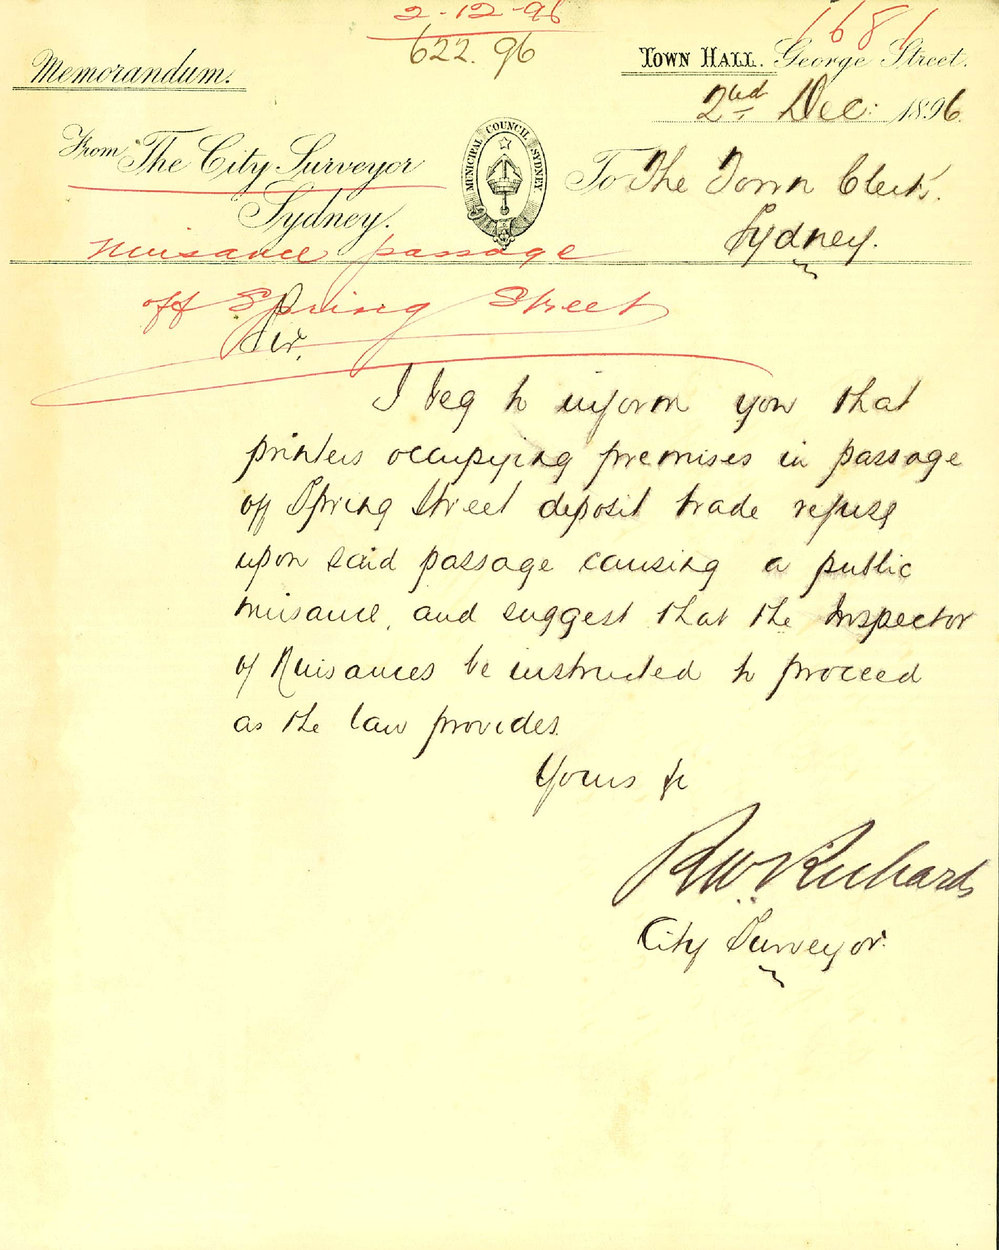 2-12-96
622.96
1681
Memorandum.
Town Hall. George Street.
2nd Dec: 1896.
From The City Surveyor
Sydney.
MUNICIPAL COUNCIL SYDNEY.
To The Town Clerk.
Sydney.
Nuisance passage
off Spring Street
Sir,
I beg to inform you that
printers occupying premises in passage
off Spring Street deposit trade refuse
upon said passage causing a public
nuisance, and suggest that the Inspector
of Nuisances be instructed to proceed
as the law provides.
Yours &c
R W Richards
City Surveyor.